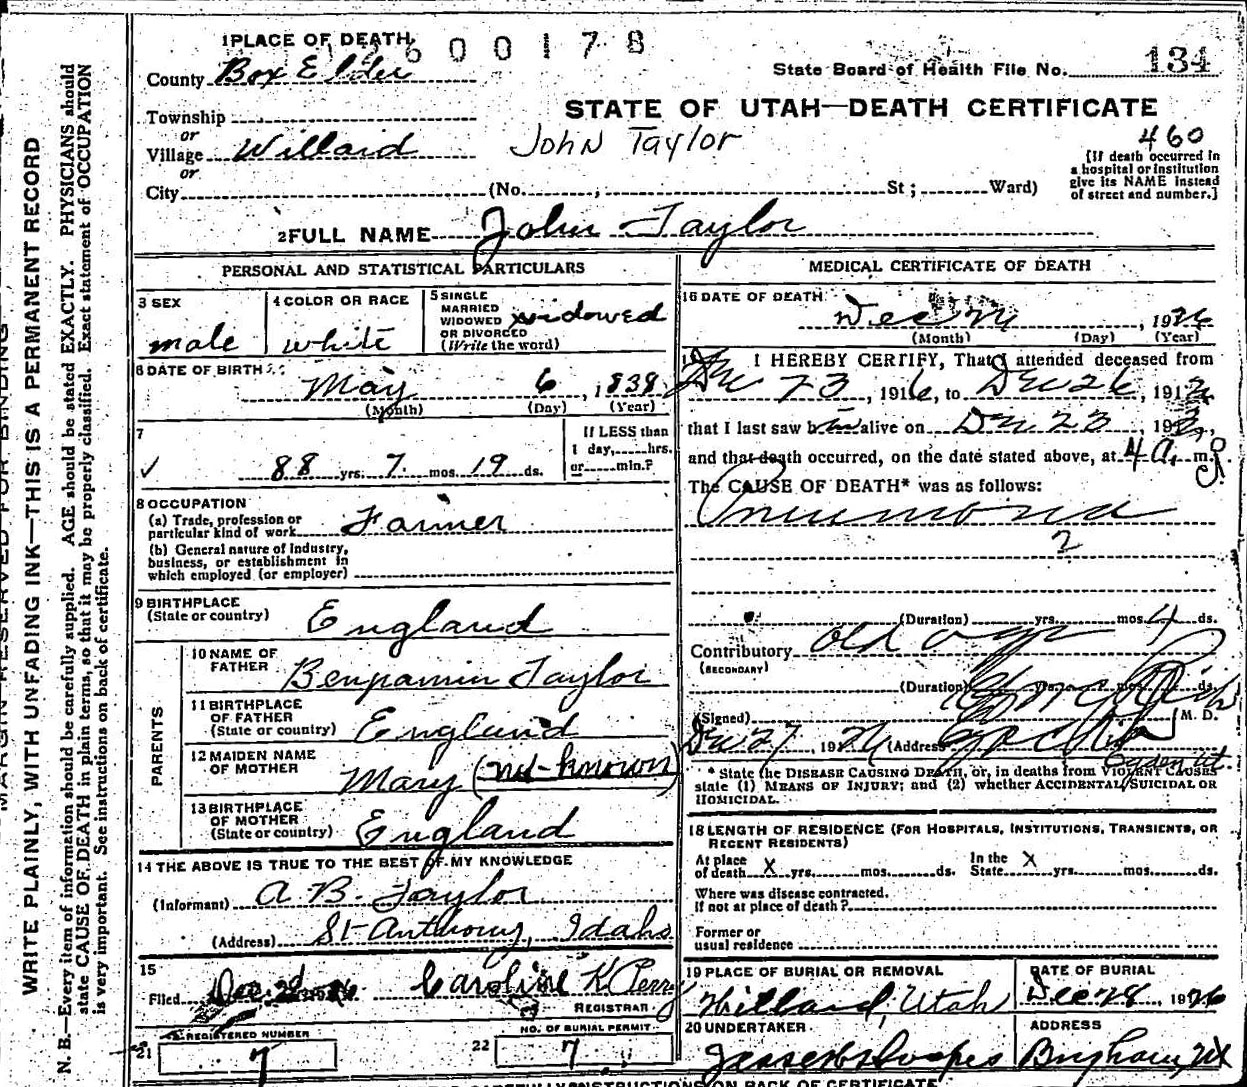 1 PLACE OF DEATH
2600178
County Box Elder
State Board of Health File No. 134
Township
STATE OF UTAH—DEATH CERTIFICATE
or
Village Willard
John Taylor
460
or
City (No. , St ; Ward)
[If death occurred in
a hospital or institution
give its NAME instead
of street and number.]
2 FULL NAME John Taylor
PERSONAL AND STATISTICAL PARTICULARS
3 SEX
male
4 COLOR OR RACE
white
5 SINGLE
MARRIED
WIDOWED
OR DIVORCED
(Write the word)
widowed
6 DATE OF BIRTH
May 6, 1838
(Month) (Day) (Year)
7
88 yrs. 7 mos. 19 ds.
If LESS than
1 day, hrs.
or min.?
8 OCCUPATION
(a) Trade, profession or
particular kind of work Farmer
(b) General nature of Industry,
business, or establishment in
which employed (or employer)
9 BIRTHPLACE
(State or country) England
PARENTS
10 NAME OF
FATHER Benjamin Taylor
11 BIRTHPLACE
OF FATHER
(State or country) England
12 MAIDEN NAME
OF MOTHER Mary (not known)
13 BIRTHPLACE
OF MOTHER
(State or country) England
14 THE ABOVE IS TRUE TO THE BEST OF MY KNOWLEDGE
(Informant) A B. Taylor
(Address) St Anthony, Idaho
15
Filed Dec. Caroline K Perry
REGISTRAR
REGISTERED NUMBER
21 7
NO. OF BURIAL PERMIT
22 7
MEDICAL CERTIFICATE OF DEATH
16 DATE OF DEATH
Dec , 1926
(Month) (Day) (Year)
I HEREBY CERTIFY, That I attended deceased from
Dec 23, 1916, to Dec 26, 191
that I last saw him alive on Dec. 23, 191
and that death occurred, on the date stated above, at 4 a. m.
The CAUSE OF DEATH* was as follows:
Pneumonia
2
(Duration) yrs. mos. 4 ds.
Contributory old age
(SECONDARY)
(Duration) yrs. mos. ds.
(Signed) M. D.
Dec 27, 19 (Address)
Ogden Ut.
* State the DISEASE CAUSING DEATH, or, in deaths from VIOLENT CAUSES
state (1) MEANS OF INJURY; and (2) whether ACCIDENTAL, SUICIDAL OR
HOMICIDAL.
18 LENGTH OF RESIDENCE (FOR HOSPITALS, INSTITUTIONS, TRANSIENTS, OR
RECENT RESIDENTS)
At place
of death X yrs. mos. ds.
In the
State X yrs. mos. ds.
Where was disease contracted.
If not at place of death?
Former or
usual residence
19 PLACE OF BURIAL OR REMOVAL
Willard, Utah
DATE OF BURIAL
Dec 28, 1926
20 UNDERTAKER
ADDRESS
Brigham, Ut
WRITE PLAINLY, WITH UNFADING INK—THIS IS A PERMANENT RECORD
N. B.—Every item of information should be carefully supplied. AGE should be stated EXACTLY. PHYSICIANS should
state CAUSE OF DEATH in plain terms, so that it may be properly classified. Exact statement of OCCUPATION
is very important. See instructions on back of certificate.